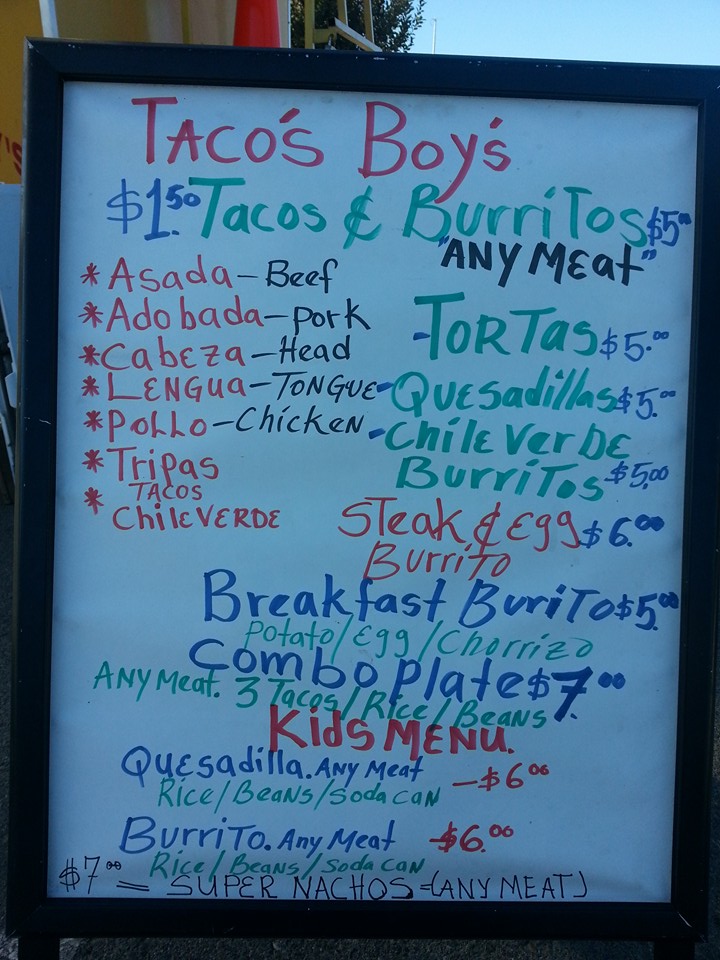 TACO'S BOY'S
$1.50 Tacos & BurriTos $5.00
"ANY MEat"
*Asada-Beef
*Adobada-pork
*Cabeza-Head
*LENGUa-TONGUE
*PoLLo-Chicken
*Tripas
* TACOS
ChilEVERDE
-TORTas $5.00
-QUEsadillas $5.00
-ChilE VerDE
BurriTos $5.00
STeak & Egg $6.00
BurriTo
Breakfast BuriTo $5.00
Potato/Egg/Chorrizo
Combo Plate $7.00
ANY Meat. 3 Tacos/Rice/Beans
Kids MENU.
QuEsadilla. Any Meat -$6.00
Rice/BeaNs/Soda caN
BurriTo. Any Meat -$6.00
Rice/Beans/Soda can
$7.00 = SUPER NACHOS-(ANY MEAT)